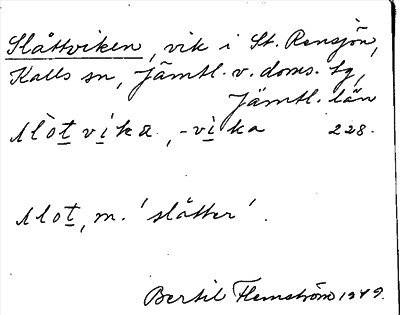 Slåttviken, vik i St. Rensjön,
Kalls sn, Jämtl. v. doms. tg,
Jämtl. län
-vika 228.
m. 'slåtter'.
Bertil Flemström 1949.